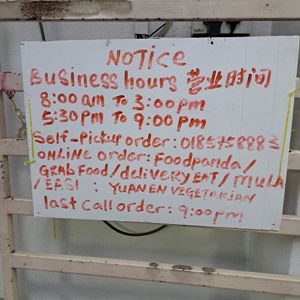 NOTICE
Business hours 营业时间
8:00 am To 3:00 pm
5:30 pm To 9:00 pm
Self-Pickup order: 0185758883
online order: Foodpanda/
GRAB Food/delivery EAT/MULA
/EASI : YUAN EN VEGETARIAN
last call order: 9:00pm